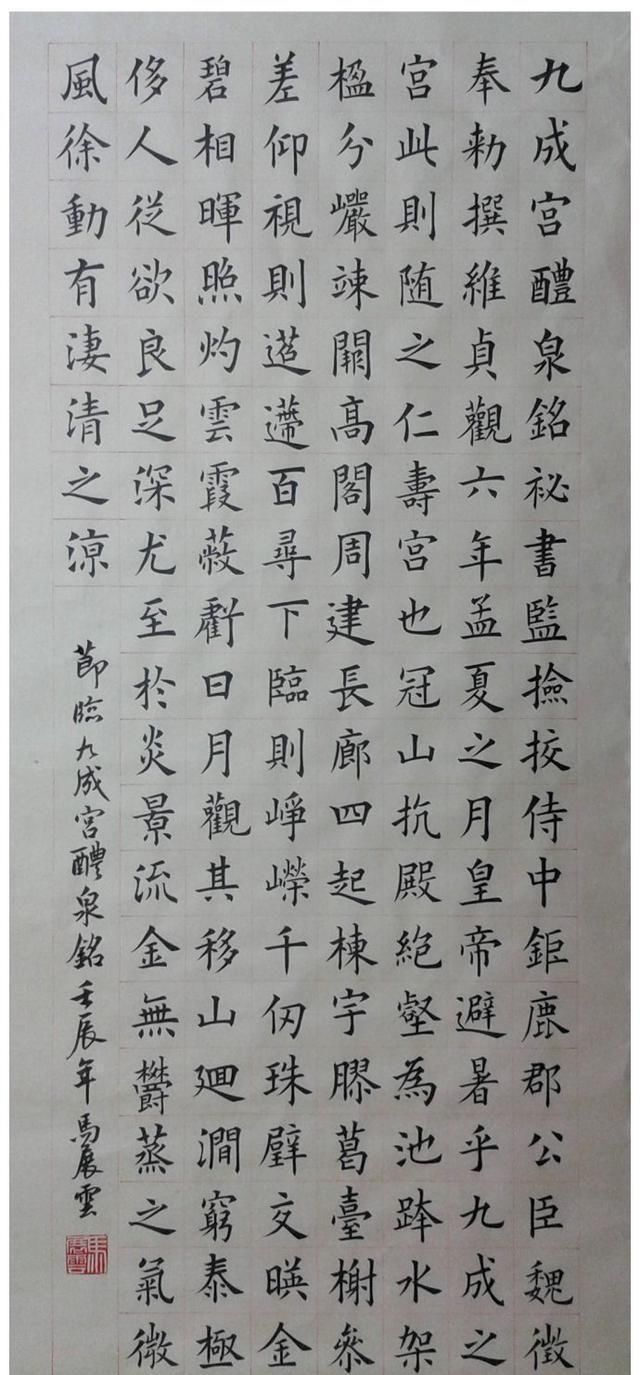 九成宫醴泉銘祕書監撿挍侍中鉅鹿郡公臣魏徵
奉勑撰維貞觀六年孟夏之月皇帝避暑乎九成之
宫此則随之仁壽宫也冠山抗殿絶壑為池跨水架
楹分巖竦闕高閣周建長廊四起棟宇膠葛臺榭参
差仰視則迢遰百尋下臨則崢嶸千仞珠璧交暎金
碧相暉照灼雲霞蔽虧日月觀其移山廻澗窮泰極
侈人從欲良足深尤至於炎景流金無欝蒸之氣微
風徐動有淒清之涼
節臨九成宫醴泉銘壬辰年 馬展雲